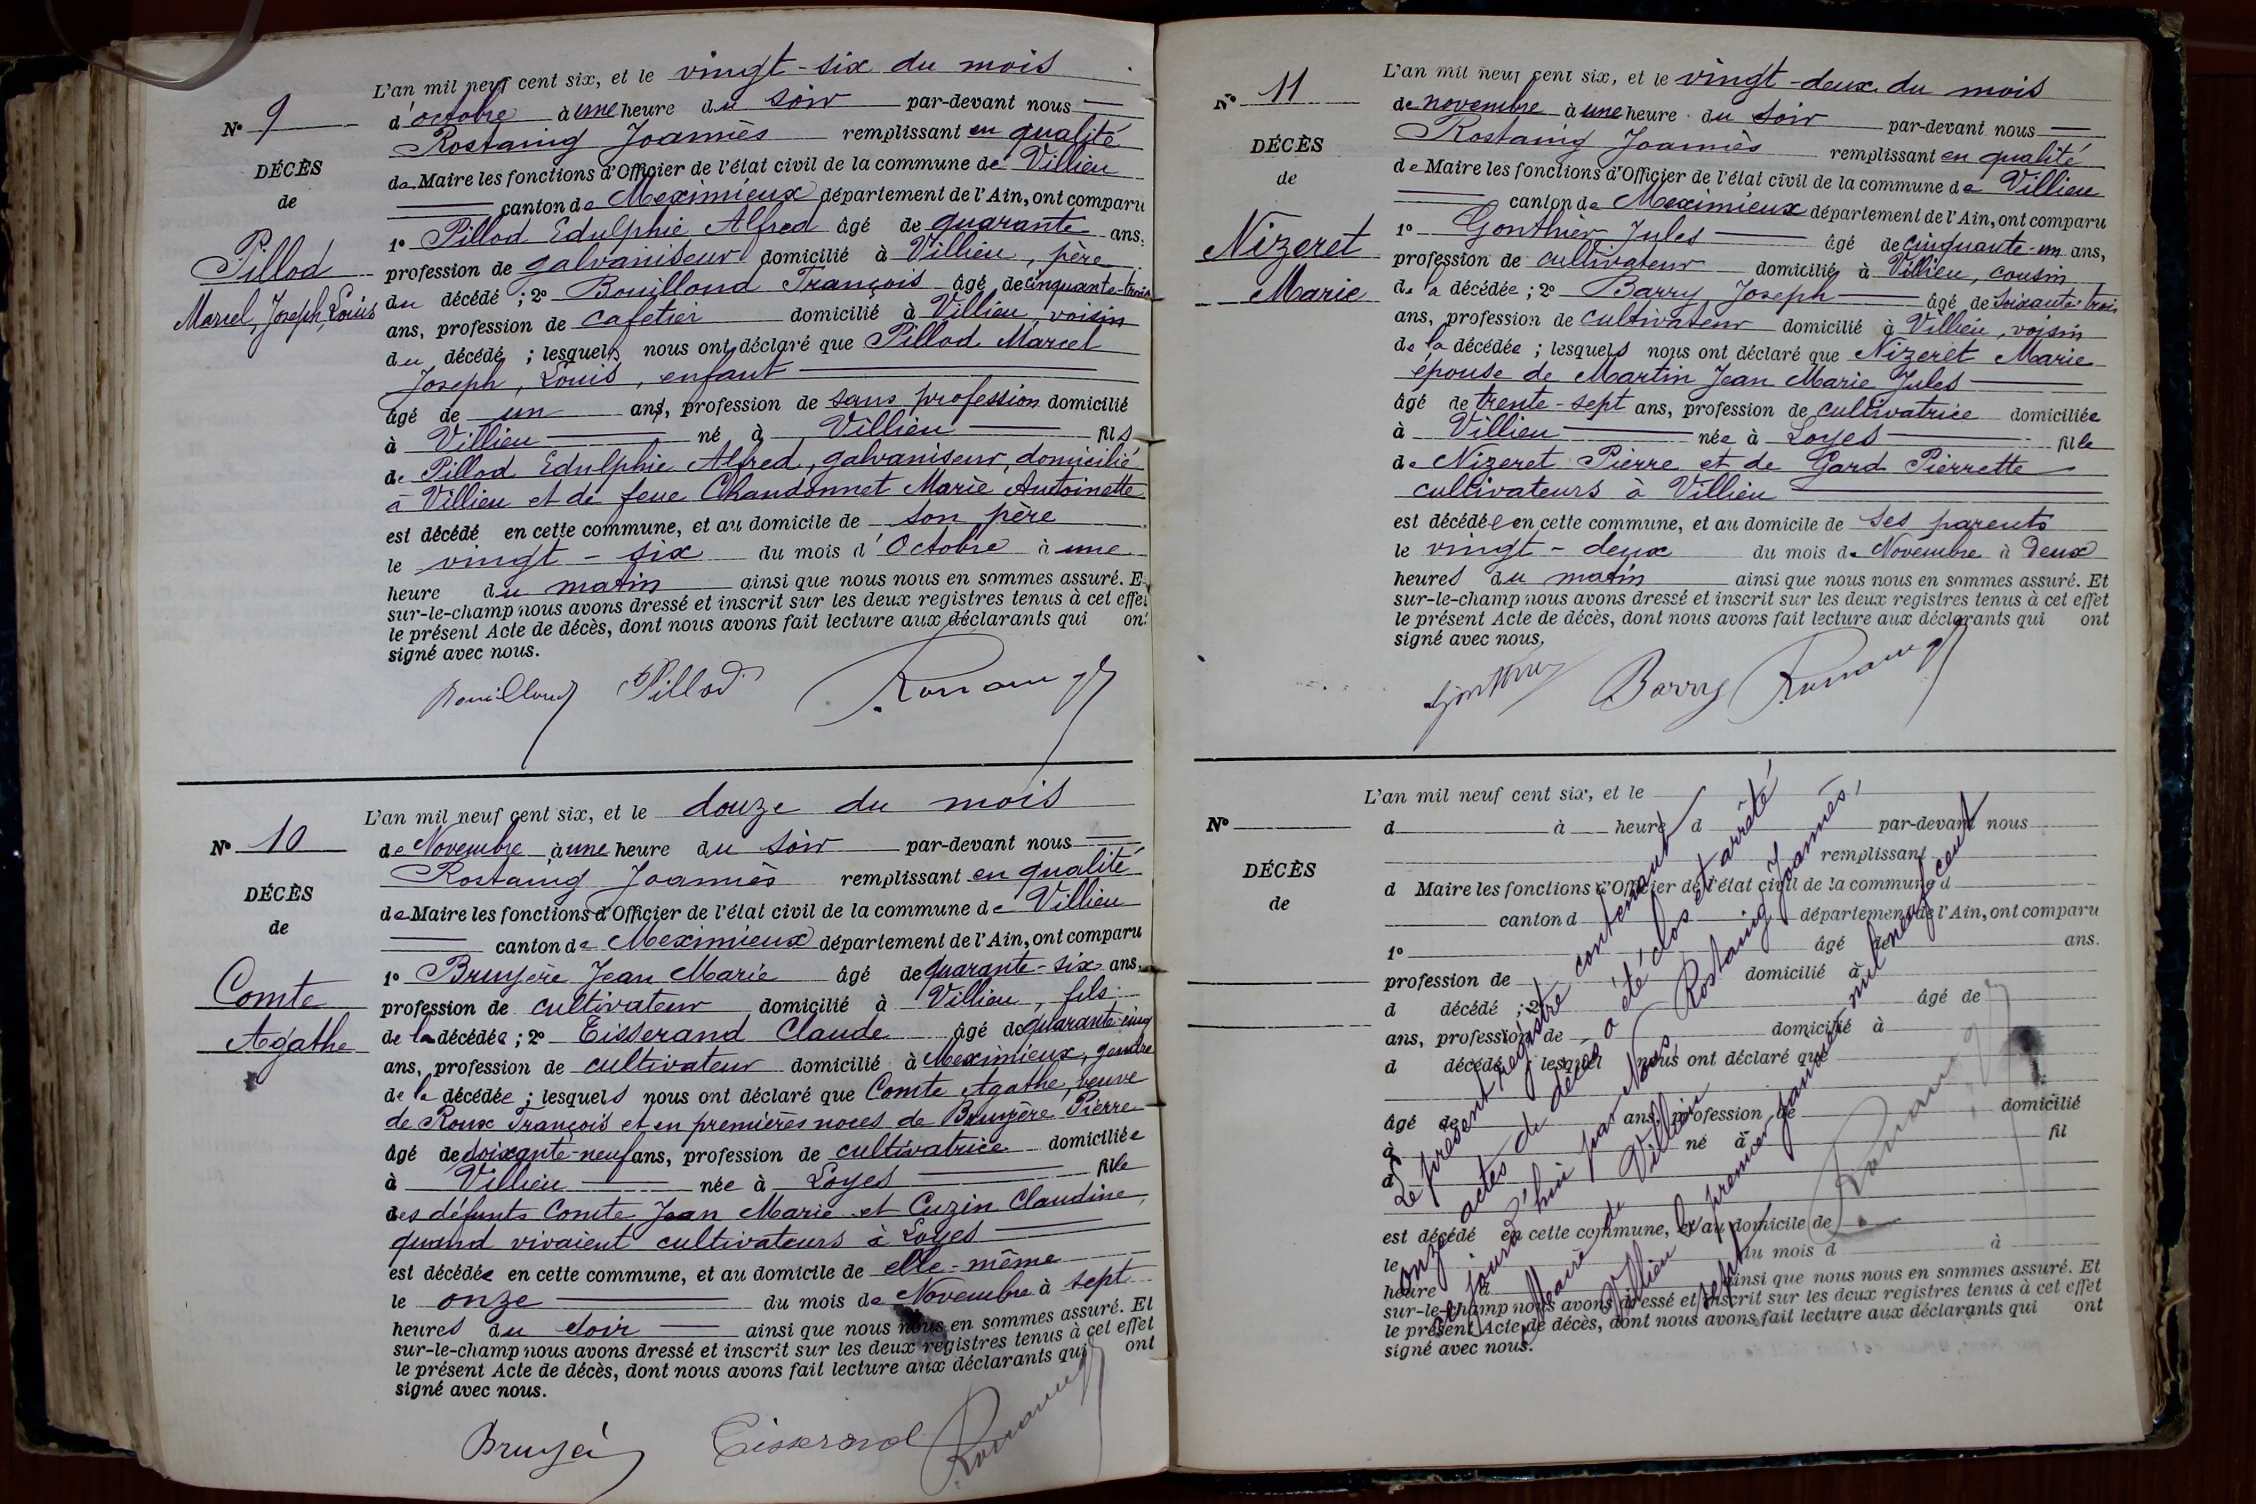 L'an mil neuf cent six, et le vingt-six du mois
d'octobre à une heure du soir par-devant nous
Rostaing Joannès remplissant en qualité
de Maire les fonctions d'Officier de l'état civil de la commune de Villieu
canton de Meximieux département de l'Ain, ont comparu
1º Pillod Edulphie Alfred âgé de quarante ans,
profession de galvaniseur domicilié à Villieu, père
du décédé ; 2º Bouilloud François âgé de cinquante-trois
ans, profession de cafetier domicilié à Villieu, voisin
du décédé ; lesquels nous ont déclaré que Pillod Marcel
Joseph, Louis, enfant
âgé de un an, profession de sans profession domicilié
à Villieu né à Villieu fils
de Pillod Edulphie Alfred, galvaniseur, domicilié
à Villieu et de feue Chaudonnet Marie Antoinette
est décédé en cette commune, et au domicile de son père
le vingt-six du mois d'Octobre à une
heure du matin ainsi que nous nous en sommes assuré. E
sur-le-champ nous avons dressé et inscrit sur les deux registres tenus à cet effet
le présent Acte de décès, dont nous avons fait lecture aux déclarants qui ont
signé avec nous.
Bouilloud Pillod Rostaing
Nº 9
DÉCÈS
de
Pillod
Marcel, Joseph, Louis
L'an mil neuf cent six, et le douze du mois
de Novembre à une heure du soir par-devant nous
Rostaing Joannès remplissant en qualité
de Maire les fonctions d'Officier de l'état civil de la commune de Villieu
canton de Meximieux département de l'Ain, ont comparu
1º Bruyère Jean Marie âgé de quarante-six ans,
profession de cultivateur domicilié à Villieu, fils
de la décédée ; 2º Tisserand Claude âgé de quarante-cinq
ans, profession de cultivateur domicilié à Meximieux, gendre
de la décédée ; lesquels nous ont déclaré que Comte Agathe, veuve
de Roux François et en premières noces de Bruyère Pierre
âgé de soixante-neuf ans, profession de cultivatrice domiciliée
à Villieu née à Loyes fille
des défunts Comte Jean Marie et Cuzin Claudine,
quand vivaient cultivateurs à Loyes
est décédée en cette commune, et au domicile de elle-même
le onze du mois de Novembre à sept
heures du soir ainsi que nous nous en sommes assuré. Et
sur-le-champ nous avons dressé et inscrit sur les deux registres tenus à cet effet
le présent Acte de décès, dont nous avons fait lecture aux déclarants qui ont
signé avec nous.
Bruyère Tisserand Rostaing
Nº 10
DÉCÈS
de
Comte
Agathe
L'an mil neuf cent six, et le vingt-deux du mois
de novembre à une heure du soir par-devant nous
Rostaing Joannès remplissant en qualité
de Maire les fonctions d'Officier de l'état civil de la commune de Villieu
canton de Meximieux département de l'Ain, ont comparu
1º Gonthier Jules âgé de cinquante-un ans,
profession de cultivateur domicilié à Villieu, cousin
de la décédée ; 2º Barry Joseph âgé de soixante-trois
ans, profession de cultivateur domicilié à Villieu, voisin
de la décédée ; lesquels nous ont déclaré que Nizeret Marie
épouse de Martin Jean Marie Jules
âgé de trente-sept ans, profession de cultivatrice domiciliée
à Villieu née à Loyes fille
de Nizeret Pierre et de Gard Pierrette
cultivateurs à Villieu
est décédée en cette commune, et au domicile de ses parents
le vingt-deux du mois de Novembre à Deux
heures du matin ainsi que nous nous en sommes assuré. Et
sur-le-champ nous avons dressé et inscrit sur les deux registres tenus à cet effet
le présent Acte de décès, dont nous avons fait lecture aux déclarants qui ont
signé avec nous.
Gonthier Barry Rostaing
Nº 11
DÉCÈS
de
Nizeret
Marie
L'an mil neuf cent six, et le
d à heure d par-devant nous
remplissant
d Maire les fonctions d'Officier de l'état civil de la commune d
canton d département de l'Ain, ont comparu
1º âgé de ans.
profession de domicilié à
d décédé ; 2º âgé de
ans, profession de domicilié à
d décédé ; lesquel nous ont déclaré que
âgé de ans, profession de domicilié
à né à fil
d
est décédé en cette commune, et au domicile de
le du mois d à
heure d ainsi que nous nous en sommes assuré. Et
sur-le-champ nous avons dressé et inscrit sur les deux registres tenus à cet effet
le présent Acte de décès, dont nous avons fait lecture aux déclarants qui ont
signé avec nous.
Nº
DÉCÈS
de
Le présent registre contenant
onze actes de décès a été clos et arrêté
ce jourd'hui par Nous, Rostaing Joannès,
Maire de Villieu
Villieu le premier janvier mil neuf cent
sept
Rostaing